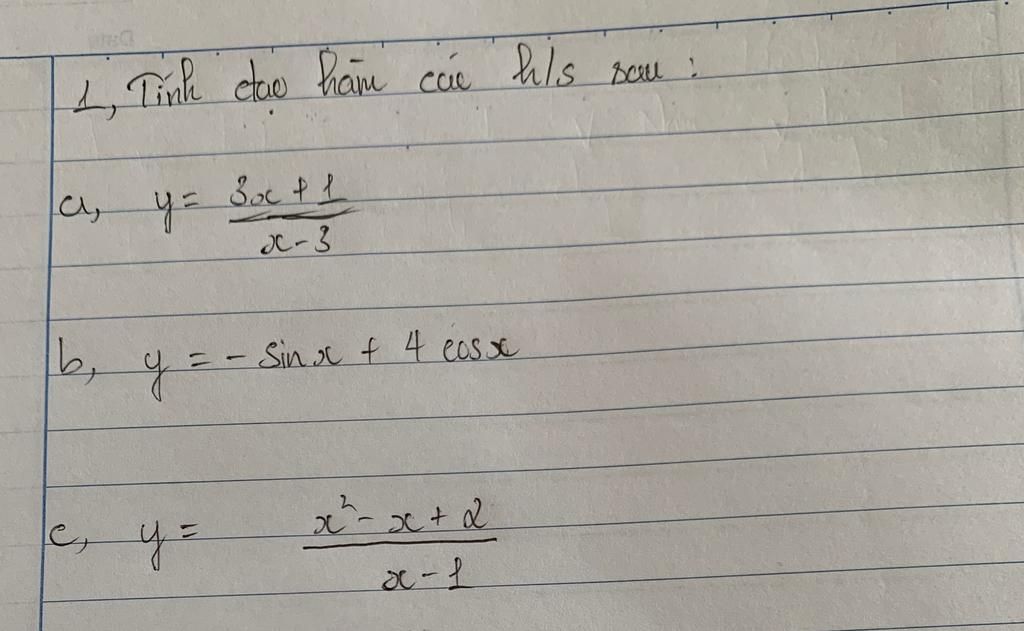 1, Tính đạo hàm các h/s sau :
a, y = 3x + 1 / x - 3
b, y = - sinx + 4 cosx
c, y = x² - x + 2 / x - 1